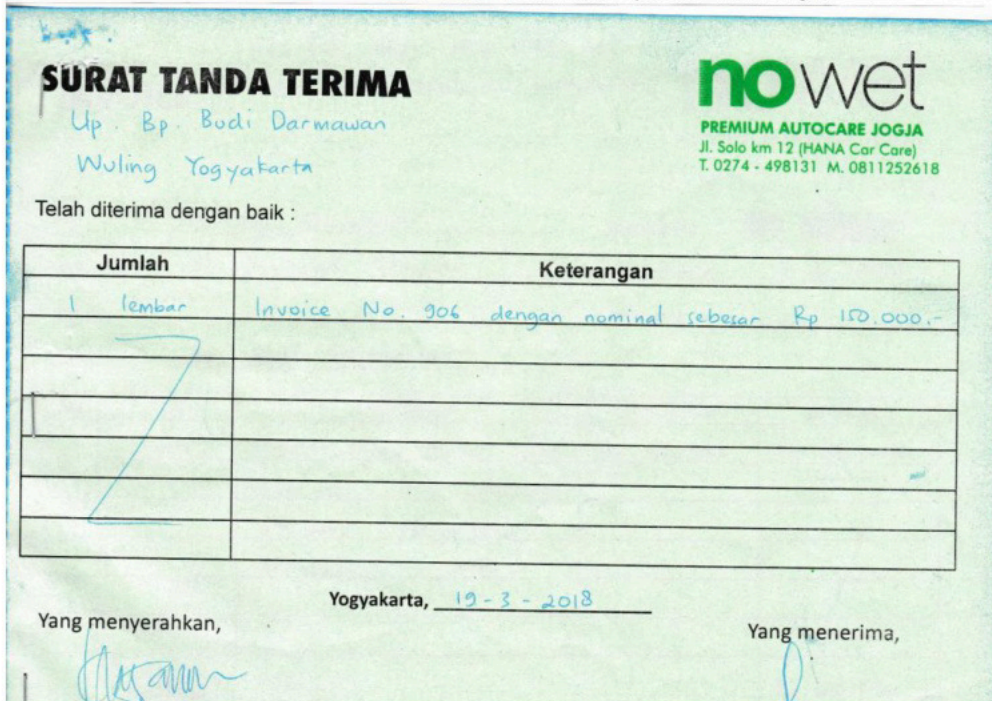 SURAT TANDA TERIMA
Up. Bp. Budi Darmawan
Wuling Yogyakarta
nowet
PREMIUM AUTOCARE JOGJA
Jl. Solo km 12 (HANA Car Care)
T. 0274 - 498131 M. 0811252618
Telah diterima dengan baik :
Jumlah Keterangan
1 lembar Invoice No. 906 dengan nominal sebesar Rp 150.000.-
Yogyakarta, 19 - 3 - 2018
Yang menyerahkan,
Yang menerima,